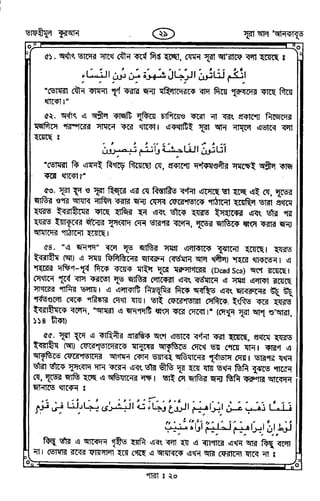 তাফহীমুল কুরআন ২৯ সূরা আল 'আনকাবূত
৫১. অর্থাৎ তাদের সাথে যৌন কর্মে লিপ্ত হচ্ছো, যেমন সূরা আ'রাফে বলা হয়েছে ঃ
إِنَّكُمْ لَتَأْتُونَ الرِّجَالَ شَهْوَةً مِّن دُونِ النِّسَاءِ
"তোমরা যৌন কামনা পূর্ণ করার জন্য মহিলাদেরকে বাদ দিয়ে পুরুষদের কাছে গিয়ে
থাকো।"
৫২. অর্থাৎ এ অশ্লীল কাজটি লুকিয়ে চাপিয়েও করো না বরং প্রকাশ্যে নিজেদের
মজলিসে পরস্পরের সামনে করে থাকো। একথাটিই সূরা আন নামলে এভাবে বলা
হয়েছে ঃ
أَتَأْتُونَ الْفَاحِشَةَ وَأَنتُمْ تُبْصِرُونَ
"তোমরা কি এমনই বিগড়ে গিয়েছো যে, প্রকাশ্যে দর্শকমণ্ডলীর সমক্ষেই অশ্লীল কাজ
করে থাকো?"
৫৩. সূরা হূদ ও সূরা হিজরে এর যে বিস্তারিত বর্ণনা এসেছে তা হচ্ছে এই যে, লূতের
জাতির ওপর আযাব নাযিল করার জন্য যেসব ফেরেশতাকে পাঠানো হয়েছিল তারা প্রথমে
হযরত ইবরাহীমের কাছে হাজির হন এবং তাঁকে হযরত ইসহাকের এবং তাঁর পর
হযরত ইয়াকূবের জন্মের সুসংবাদ দেন তারপর বলেন, লূতের জাতিকে ধ্বংস করার জন্য
আমাদের পাঠানো হয়েছে।
৫৪. "এ জনপদ" বলে লূত জাতির সমগ্র এলাকাকে বুঝানো হয়েছে। হযরত
ইবরাহীম (আ) এ সময় ফিলিস্তিনের
শহরের দক্ষিণ-পূর্ব দিকে কয়েক মাইল দূরে মরুসাগরের (Dead Sea) অংশ রয়েছে।
সেখানে পূর্বে বাস করতো লূত জাতির লোকেরা এবং বর্তমানে এ সমগ্র এলাকা রয়েছে
সাগরের পানির তলায়।
ইবরাহীমকে বলেন, "আমরা এ জনপদটি ধ্বংস করে দেবো।"
৫৫. সূরা হূদে এ কাহিনীর প্রারম্ভিক অংশ এভাবে বর্ণনা করা হয়েছে, প্রথমে হযরত
ইবরাহীম (আ) ফেরেশতাদেরকে মানুষের আকৃতিতে দেখে ভয় পেয়ে যান। কারণ এ
আকৃতিতে ফেরেশতাদের আগমন কোন ভয়াবহ অভিযানের পূর্বাভাস দেয়। তারপর যখন
তাঁরা তাঁকে সুসংবাদ দান করেন এবং তাঁর ভীতি দূর হয়ে যায় তখন তিনি বুঝতে পারেন
যে, লূতের জাতি হচ্ছে এ অভিযানের লক্ষ। তাই সে জাতির জন্য তিনি করুণার আবেদন
জানাতে থাকেন ঃ
فَلَمَّا ذَهَبَ عَنْ إِبْرَاهِيمَ الرَّوْعُ وَجَاءَتْهُ الْبُشْرَىٰ يُجَادِلُنَا فِي قَوْمِ
لُوطٍ إِنَّ إِبْرَاهِيمَ لَحَلِيمٌ أَوَّاهٌ مُّنِيبٌ
কিন্তু তাঁর এ আবেদন গৃহীত হয়নি এবং বলা হয় এ ব্যাপারে এখন আর কিছু বলো
না। তোমার রবের ফায়সালা হয়ে গেছে এ আযাবকে এখন আর ফেরানো যাবে না ঃ
পারা ঃ ২০